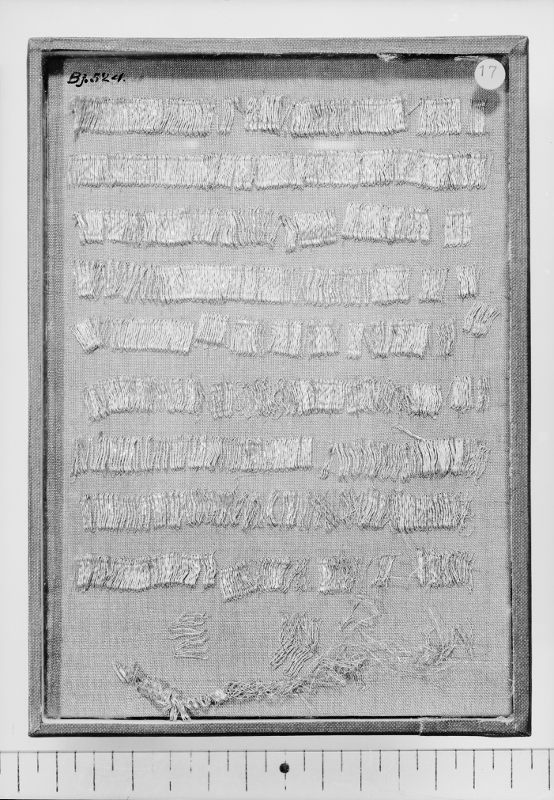 Bj.524.
17